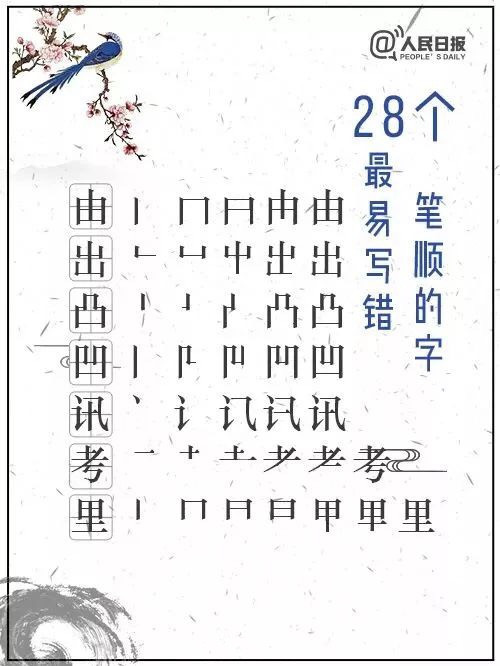 @人民日报
PEOPLE'S DAILY
28个
最易写错
笔顺的字
由 丨 冂 日 由 由
出 ㄴ 凵 屮 出 出
凸 凸 凸
凹 丨 凹 凹
讯 丶 讠 讯 讯
考 一 十 土 耂 耂 考
里 丨 冂 日 日 甲 里 里